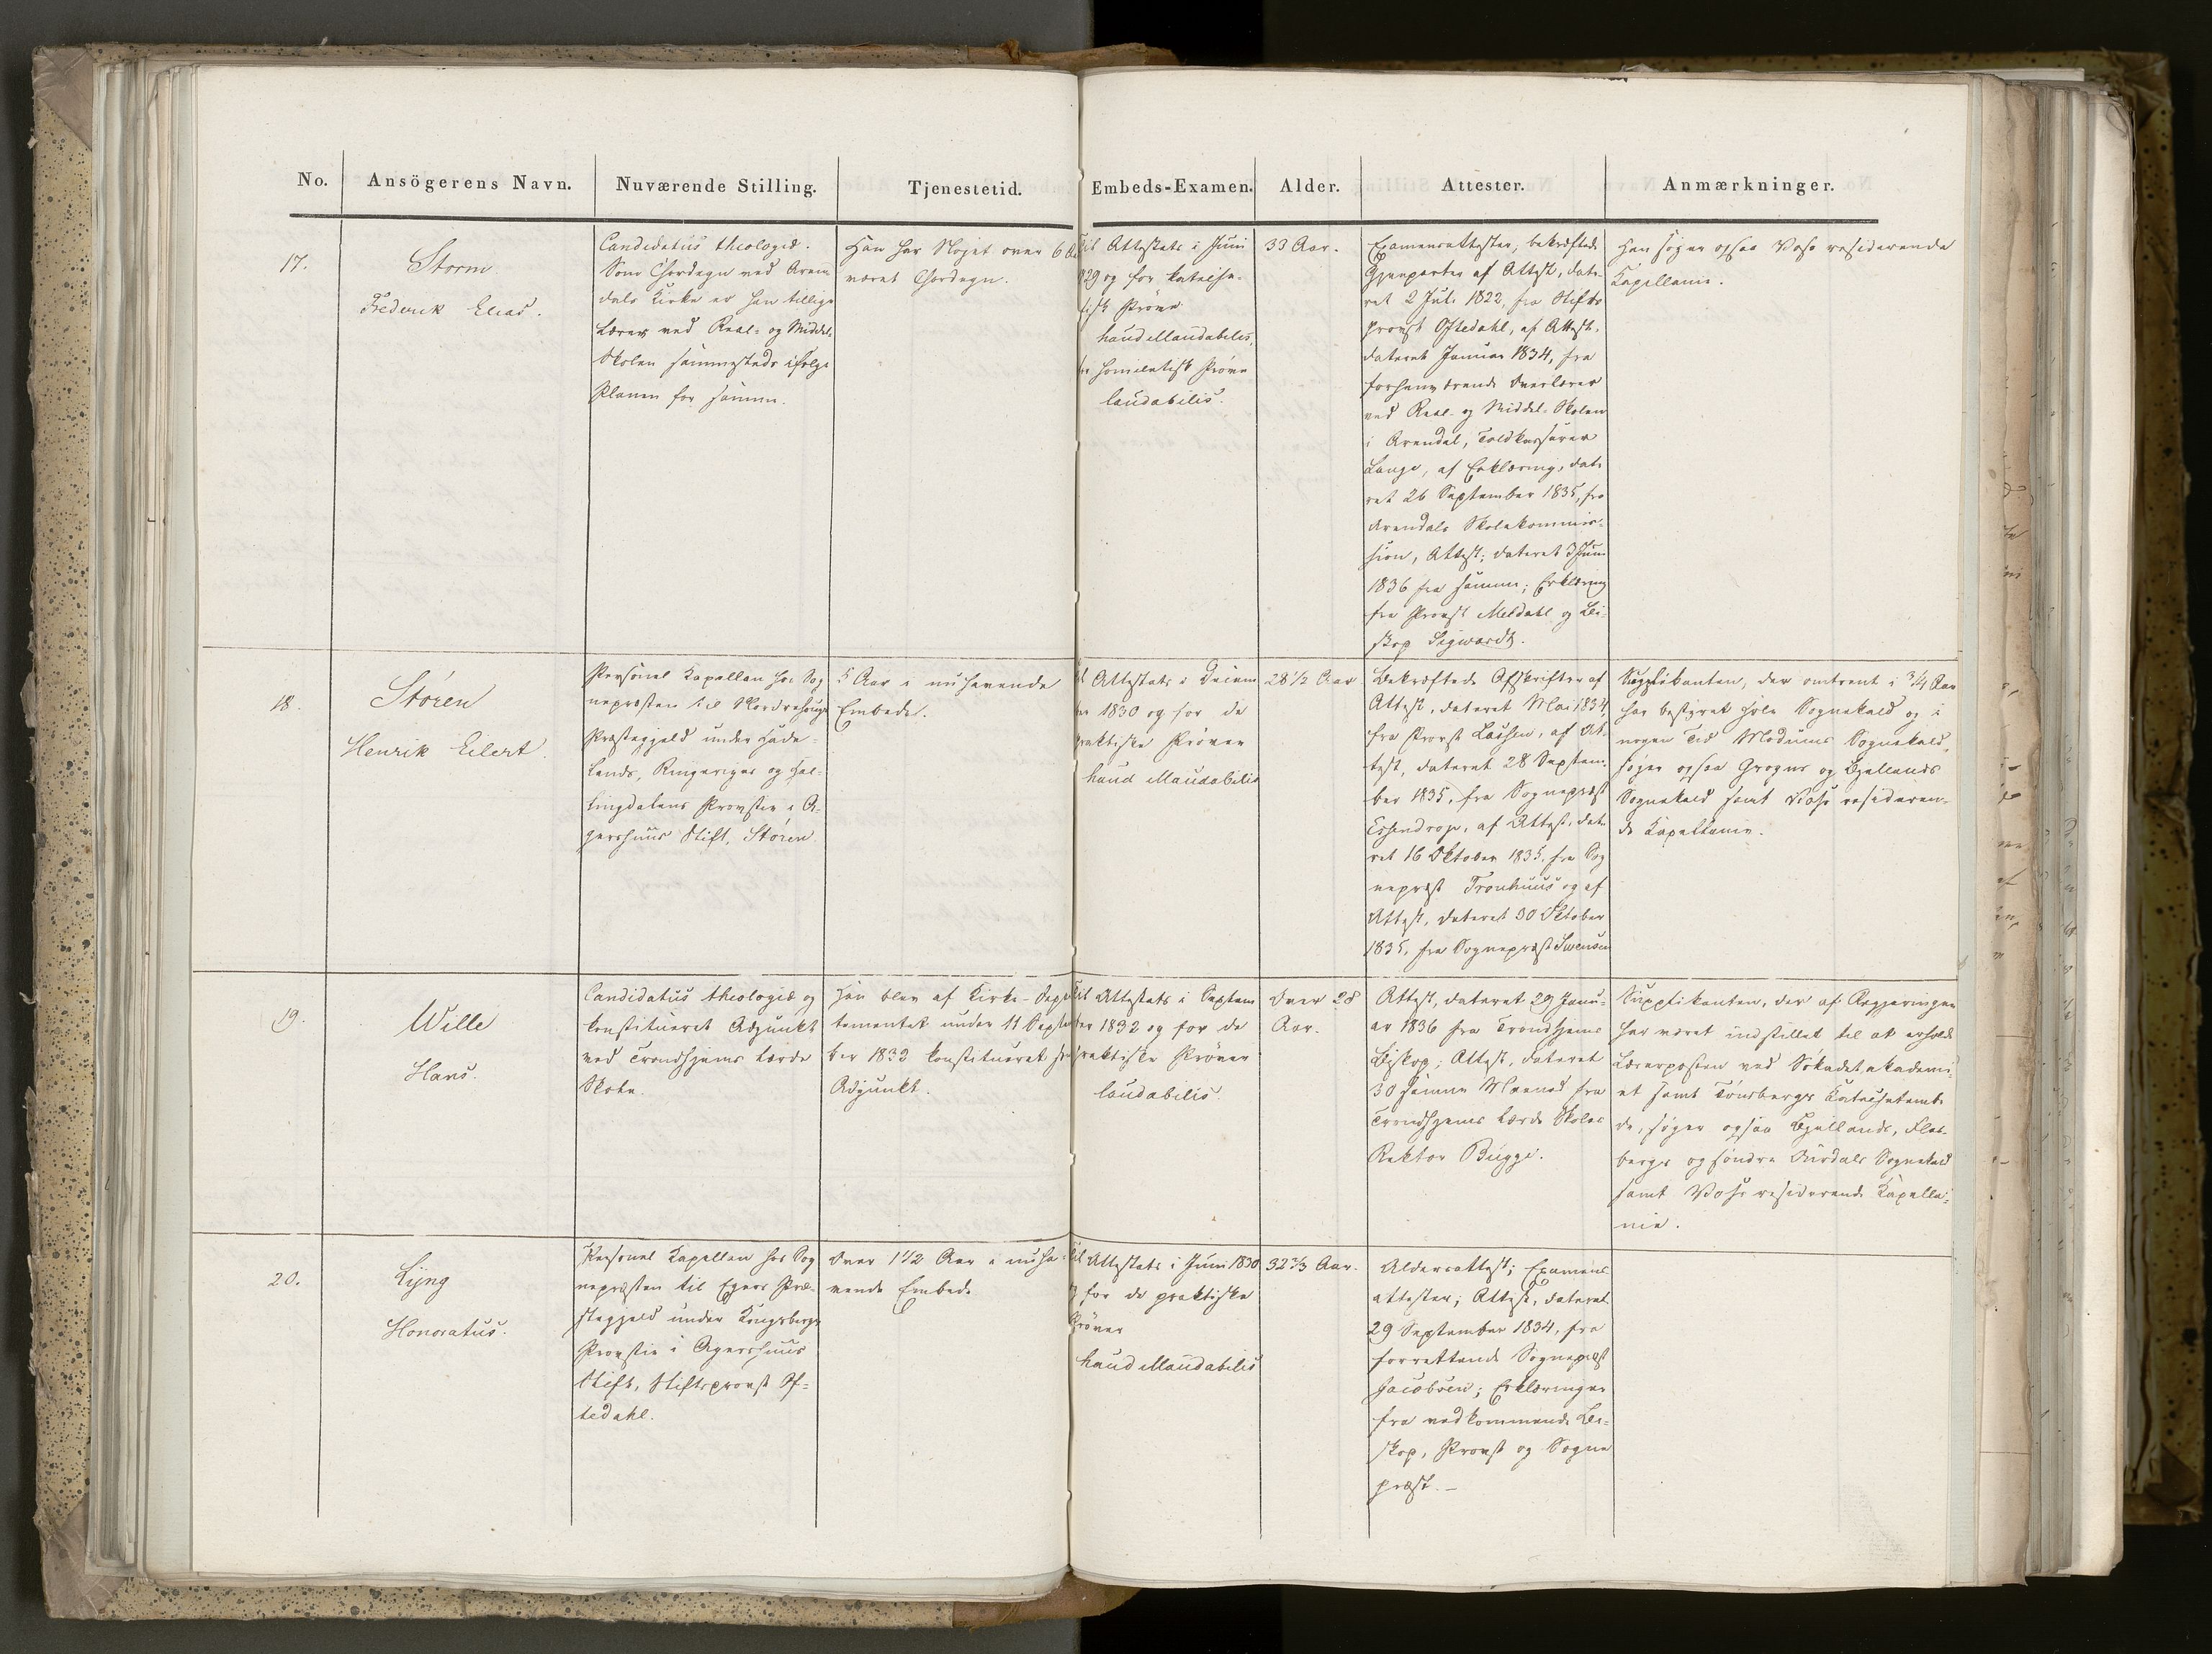 No.
Ansögerens Navn.
Nuværende Stilling.
Tjenestetid.
Embeds-Examen.
Alder.
Attester.
Anmærkninger.
17.
Storm
Frederik Elias.
Candidatus theologiæ.
Som Chordegn ved Aren
dals Kirke er han tillige
Lærer ved Real- og Middel-
Skolen sammesteds ifølge
Planen for samme.
Han har Noget over 6
været Chordegn.
til Attestats i Juni
829 og for katechetisk
Prøve
haud illaudabilis,
homiletisk Prøve
laudabilis.
33 Aar.
Examensattester, bekræftede
Gjenparter af Attest, date-
ret 2 Juli 1822, fra Stifts
provst Oftedahl, af Attest,
dateret Januar 1834, fra
forhenværende Overlærer
ved Real- og Middel-Skolen
i Arendal, Toldkasserer
Lange, af Erklæring, date
ret 26 September 1835, fra
Arendals Skolekommis-
sion, Attest, dateret 3 Juni
1836 fra samme; Erklæring
fra Provst Meldahl og Bi-
skop Sigwardt.
Han søger ogsaa Voss residerende
Kapellanie.
18.
Støren
Henrik Eilert.
Personel Kapellan hos Sog
nepræsten til Norderhougs
Præstegjeld under Hade-
lands, Ringeriges og Hal-
lingdalens Provstie i A-
gershuus Stift, Støren.
5 Aar i nuhavende
Embede.
Attestats i Decem
ber 1830 og for de
praktiske Prøver
haud illaudabilis
28 1/2 Aar
Bekræftede Afskrifter af
Attest, dateret Mai 1834,
fra Provst Lassen, af At-
test, dateret 28 Septem
ber 1835, fra Sognepræst
Essendrop, af Attest, date
ret 16 Oktober 1835, fra Sog
nepræst Tronhuus og af
Attest, dateret 30 Oktober
1835, fra Sognepræst Swensen
Supplikanten, der omtrent i 3/4 Aar
har bestyret Hole Sognekald og i
nogen Tid Modums Sognekald,
søger ogsaa og Bjellands
Sognekald samt Voss residerende
Kapellanie.
19.
Wille
Hans.
Candidatus theologiæ og
konstitueret Adjunkt
ved Trondhjems lærde
Skole.
Han blev af Kirke-Depar
tementet under 11 Septem
ber 1833 konstitueret som
Adjunkt.
til Attestats i Septem
ber 1832 og for de
praktiske Prøver
laudabilis.
Over 28
Aar.
Attest, dateret 29 Janu-
ar 1836 fra Trondhjems
Biskop; Attest, dateret
30 samme Maaned fra
Trondhjems lærde Skoles
Rektor Bugge.
Supplikanten, der af Regjeringen
har været indstillet til at erholde
Lærerposten ved Søkadetakademi-
et samt Tönsbergs Katechetembe
de, søger ogsaa Bjellands, Fles-
bergs og søndre Aurdals Sognekald
samt Voss residerende Kapella-
nie.
20.
Lyng
Honoratus.
Personel Kapellan hos Sog
nepræsten til Egers Præ-
stegjeld under Kongsbergs
Provstie i Agershuus
Stift, Stiftsprovst Of-
tedahl.
Over 1 1/2 Aar i nuha-
vende Embede
til Attestats i Juni 1830
og for de praktiske
Prøver
haud illaudabilis
32 2/3 Aar.
Aldersattest; Examens
attester; Attest, dateret
29 September 1834, fra
forrettende Sognepræst
Jacobsen; Erklæringer
fra vedkommende Bi-
skop, Provst og Sogne
præst.